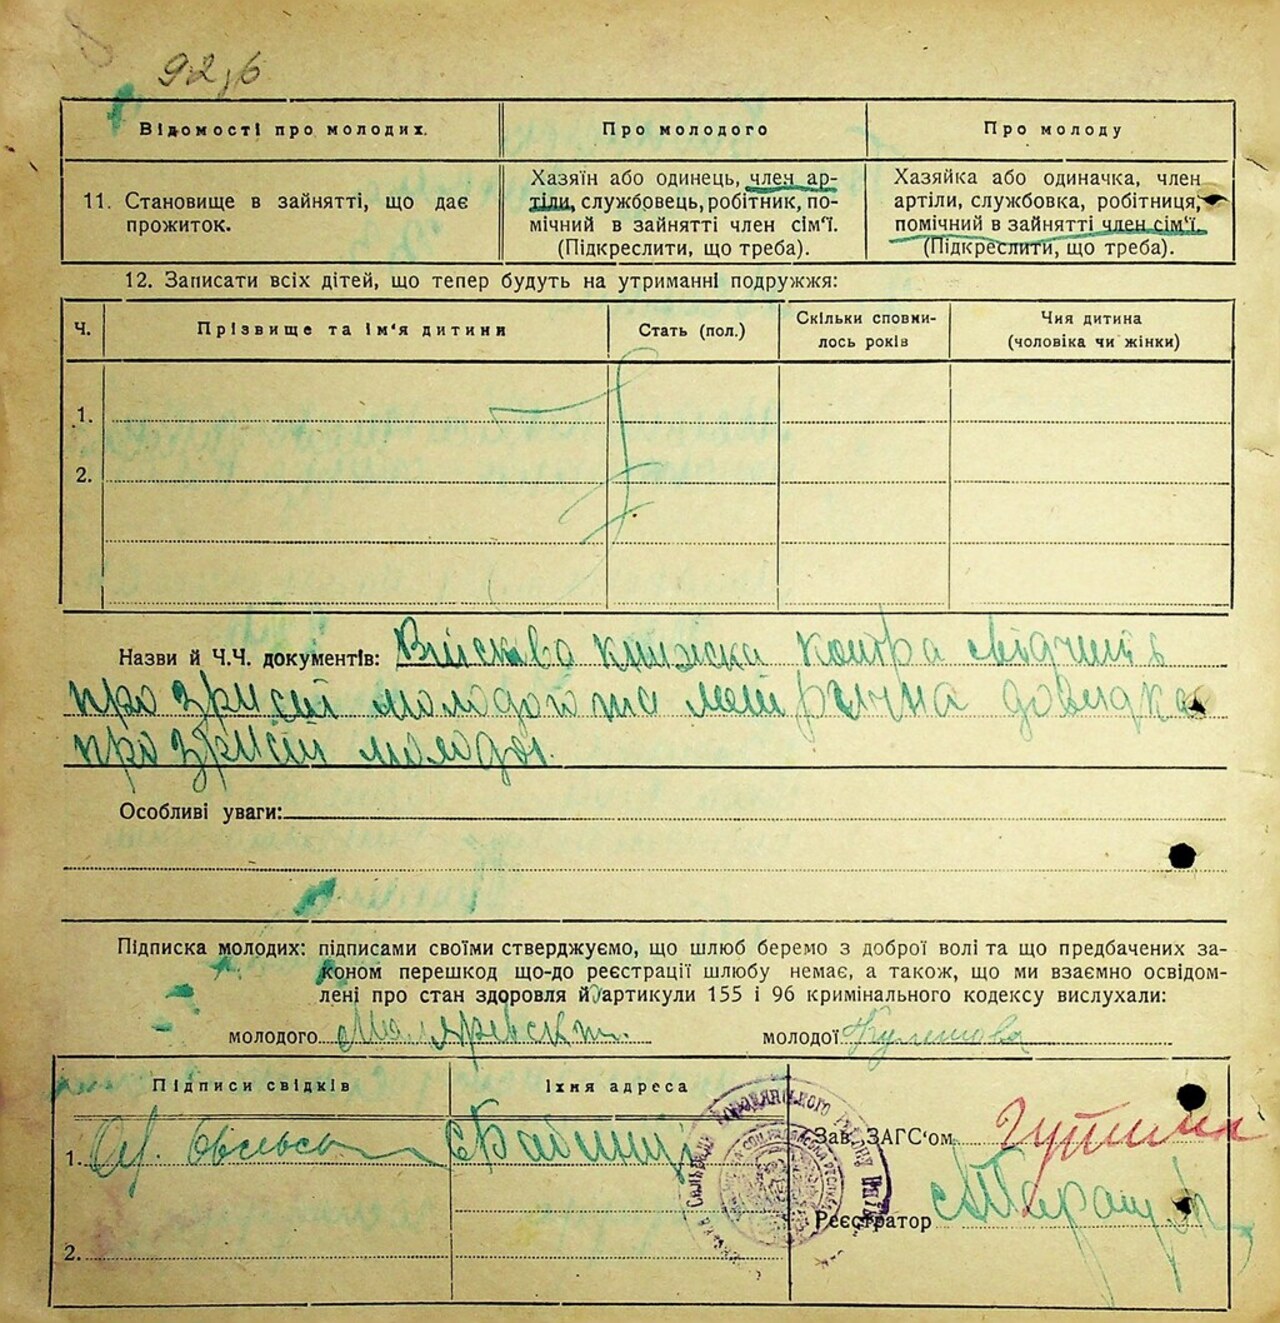 92,6
Відомості про молодих.
Про молодого
Про молоду
11. Становище в зайнятті, що дає
прожиток.
Хазяїн або одинець, член ар-
тіли, службовець, робітник, по-
мічний в зайнятті член сім'ї.
(Підкреслити, що треба).
Хазяйка або одиначка, член
артіли, службовка, робітниця,
помічний в зайнятті член сім'ї.
(Підкреслити, що треба).
12. Записати всіх дітей, що тепер будуть на утриманні подружжя:
Ч.
Прізвище та ім'я дитини
Стать (пол.)
Скільки сповни-
лось років
Чия дитина
(чоловіка чи жінки)
1.
2.
Назви й Ч.Ч. документів: книжка свідчить
про зрист молодого та метрична довидка
про зрист молодої.
Особливі уваги:
Підписка молодих: підписами своїми стверджуємо, що шлюб беремо з доброї волі та що предбачених за-
коном перешкод що-до реєстрації шлюбу немає, а також, що ми взаємно освідом-
лені про стан здоровля й артикули 155 і 96 кримінального кодексу вислухали:
молодого
молодої
Підписи свідків
Їхня адреса
1.
с Бабинці
Зав. ЗАГС'ом
Реєстратор
2.